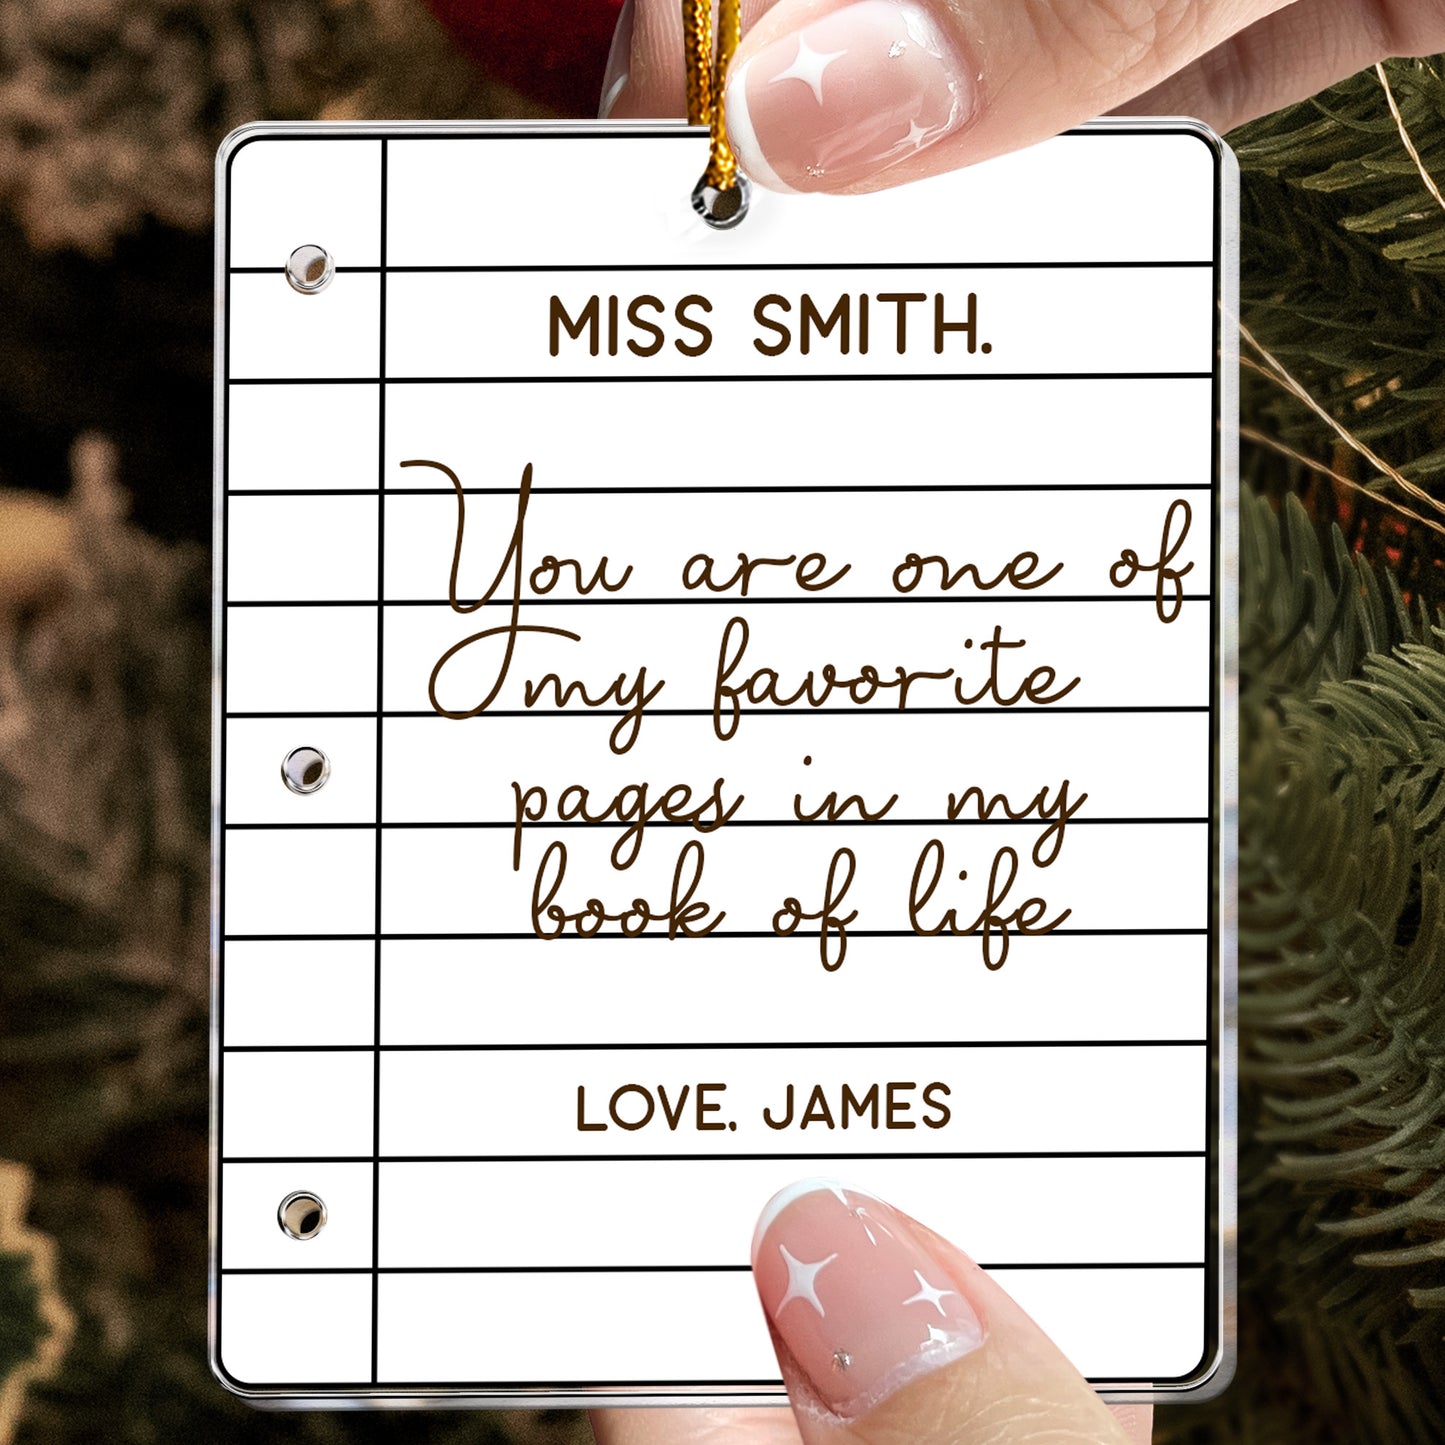 MISS SMITH.
You are one of
my favorite
pages in my
book of life
LOVE, JAMES